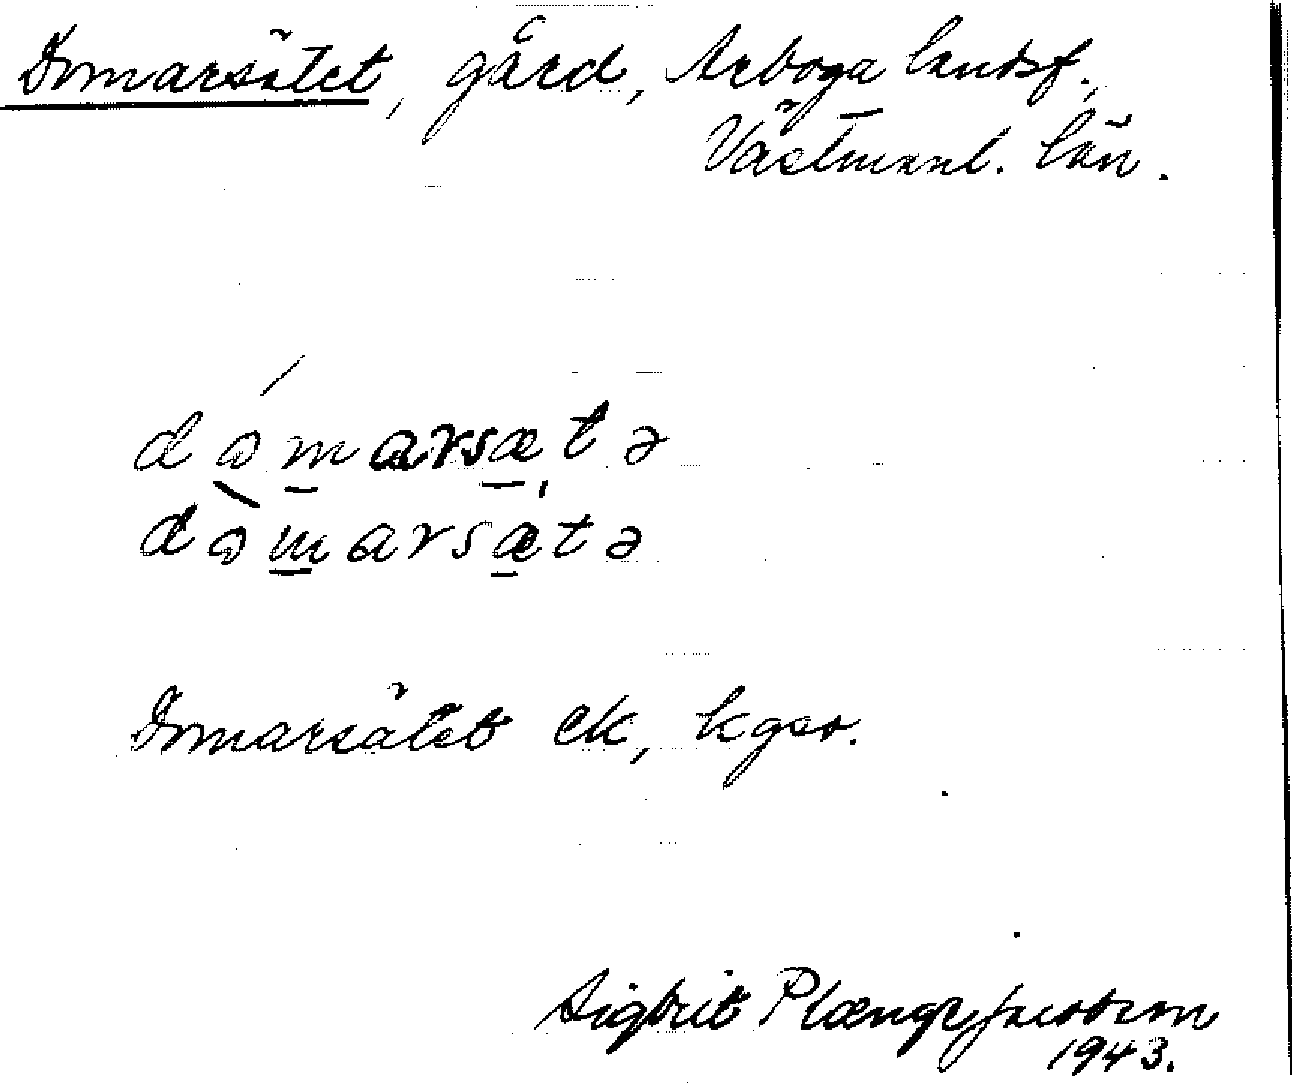 Domarsätet, gård, Arboga landsf.,
Västmanl. län.
dómarsætə
dòmarsætə
Domarsätet ek, kgsr.
Sigbrit Plænge Jacobson
1943.